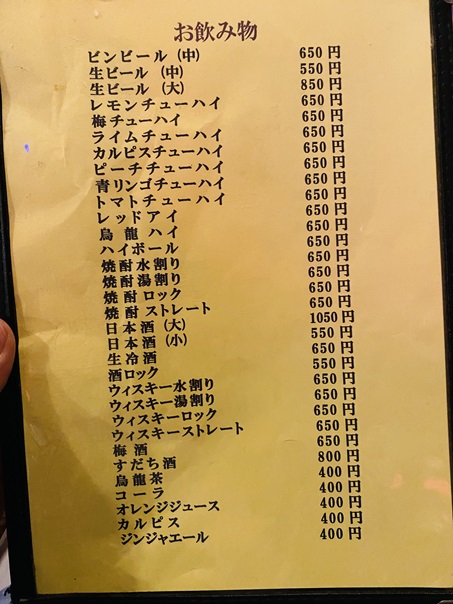 お飲み物
ビンビール（中） 650円
生ビール（中） 550円
生ビール（大） 850円
レモンチューハイ 650円
梅チューハイ 650円
ライムチューハイ 650円
カルピスチューハイ 650円
ピーチチューハイ 650円
青リンゴチューハイ 650円
トマトチューハイ 650円
レッドアイ 650円
烏龍ハイ 650円
ハイボール 650円
焼酎水割り 650円
焼酎湯割り 650円
焼酎ロック 650円
焼酎ストレート 650円
日本酒（大） 1050円
日本酒（小） 550円
生冷酒 650円
酒ロック 550円
ウィスキー水割り 650円
ウィスキー湯割り 650円
ウィスキーロック 650円
ウィスキーストレート 650円
梅酒 650円
すだち酒 800円
烏龍茶 400円
コーラ 400円
オレンジジュース 400円
カルピス 400円
ジンジャエール 400円